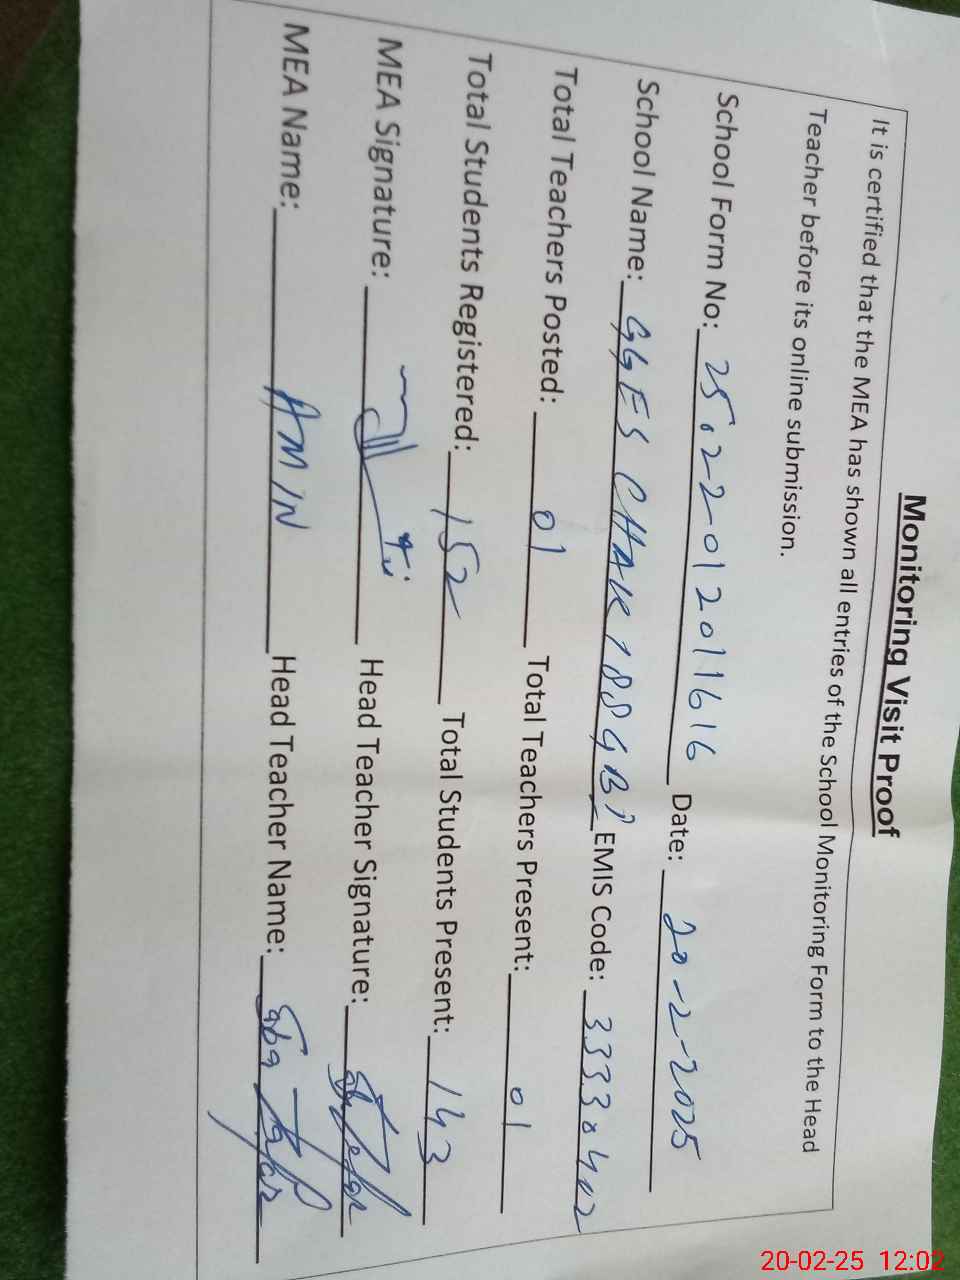 Monitoring Visit Proof
It is certified that the MEA has shown all entries of the School Monitoring Form to the Head
Teacher before its online submission.
School Form No: 25.22-012011616 Date: 20-2-2025
School Name: GGES CHAK 188GB EMIS Code: 33330402
Total Teachers Posted: 01 Total Teachers Present: 01
Total Students Registered: 152 Total Students Present: 143
MEA Signature: Head Teacher Signature:
MEA Name: AMIN Head Teacher Name:
20-02-25 12:02